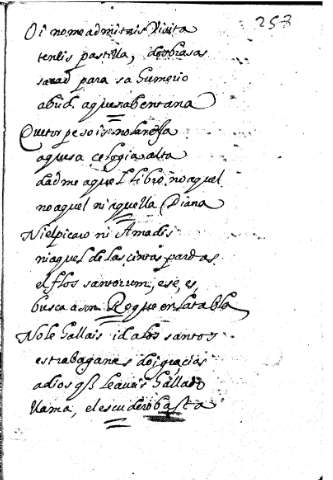 257
Oi no me admitais Visita
teneis pastilla, dos brasas
sacad para sahumerio
abrid aquesa bentana
Quotos peso is no la
aquesa celogia alta
dadme aquel libro, no aquel
no aquel ni aquella Diana
Ni el picaro ni Amadis
ni aquel de las cintas pardas
el flos santorum, ese, es
busca a son Roque en la tabla
No le hallais id a los santos
estrabagantes doi gracias
a dios q le aveis hallado
llama, el escudero basta